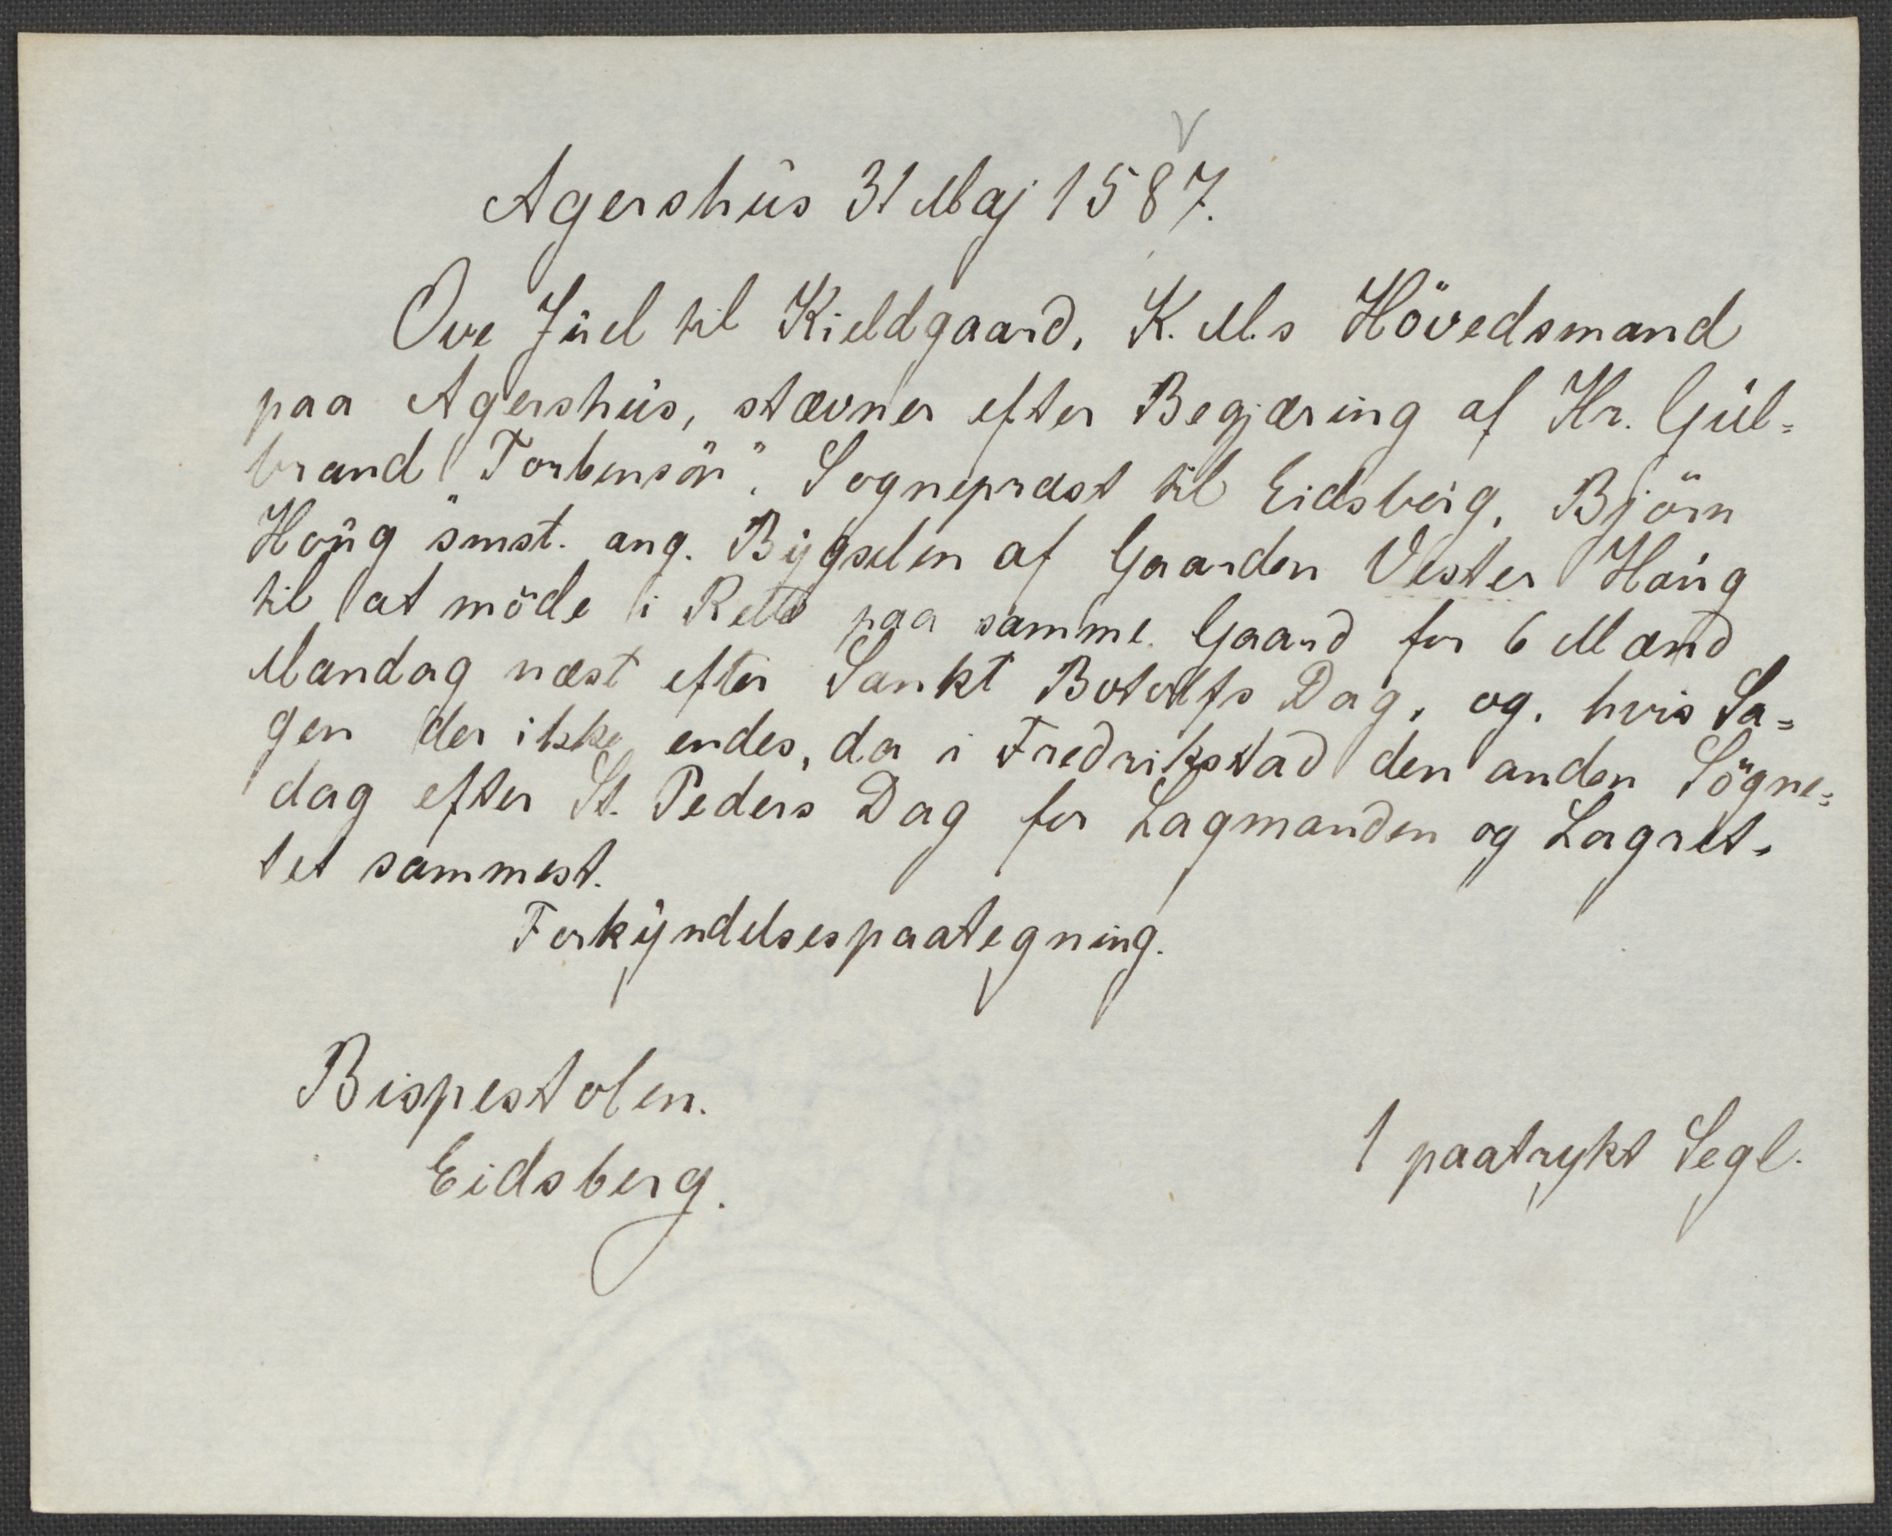 Agershus 31 Maj 1587.
Ove Juel til Kieldgaard, K. M.s Hövedsmand
paa Agershus, stævner efter Begjæring af Hr. Gul=
brand Torbensön, Sognepræst til Eidsberg, Björn
Houg smst. ang. Bygselen af Gaarden Vester Houg
til at möde i Rette paa samme Gaard for 6 Mænd
Mandag næst efter Sankt Botolfs Dag, og, hvis Sa=
gen der ikke endes, da i Fredrikstad den anden Sögne=
dag efter St. Peders Dag for Lagmanden og Lagret=
tet sammest.
Forkyndelsespaategning.
Bispestolen.
Eidsberg.
1 paatrykt Segl.